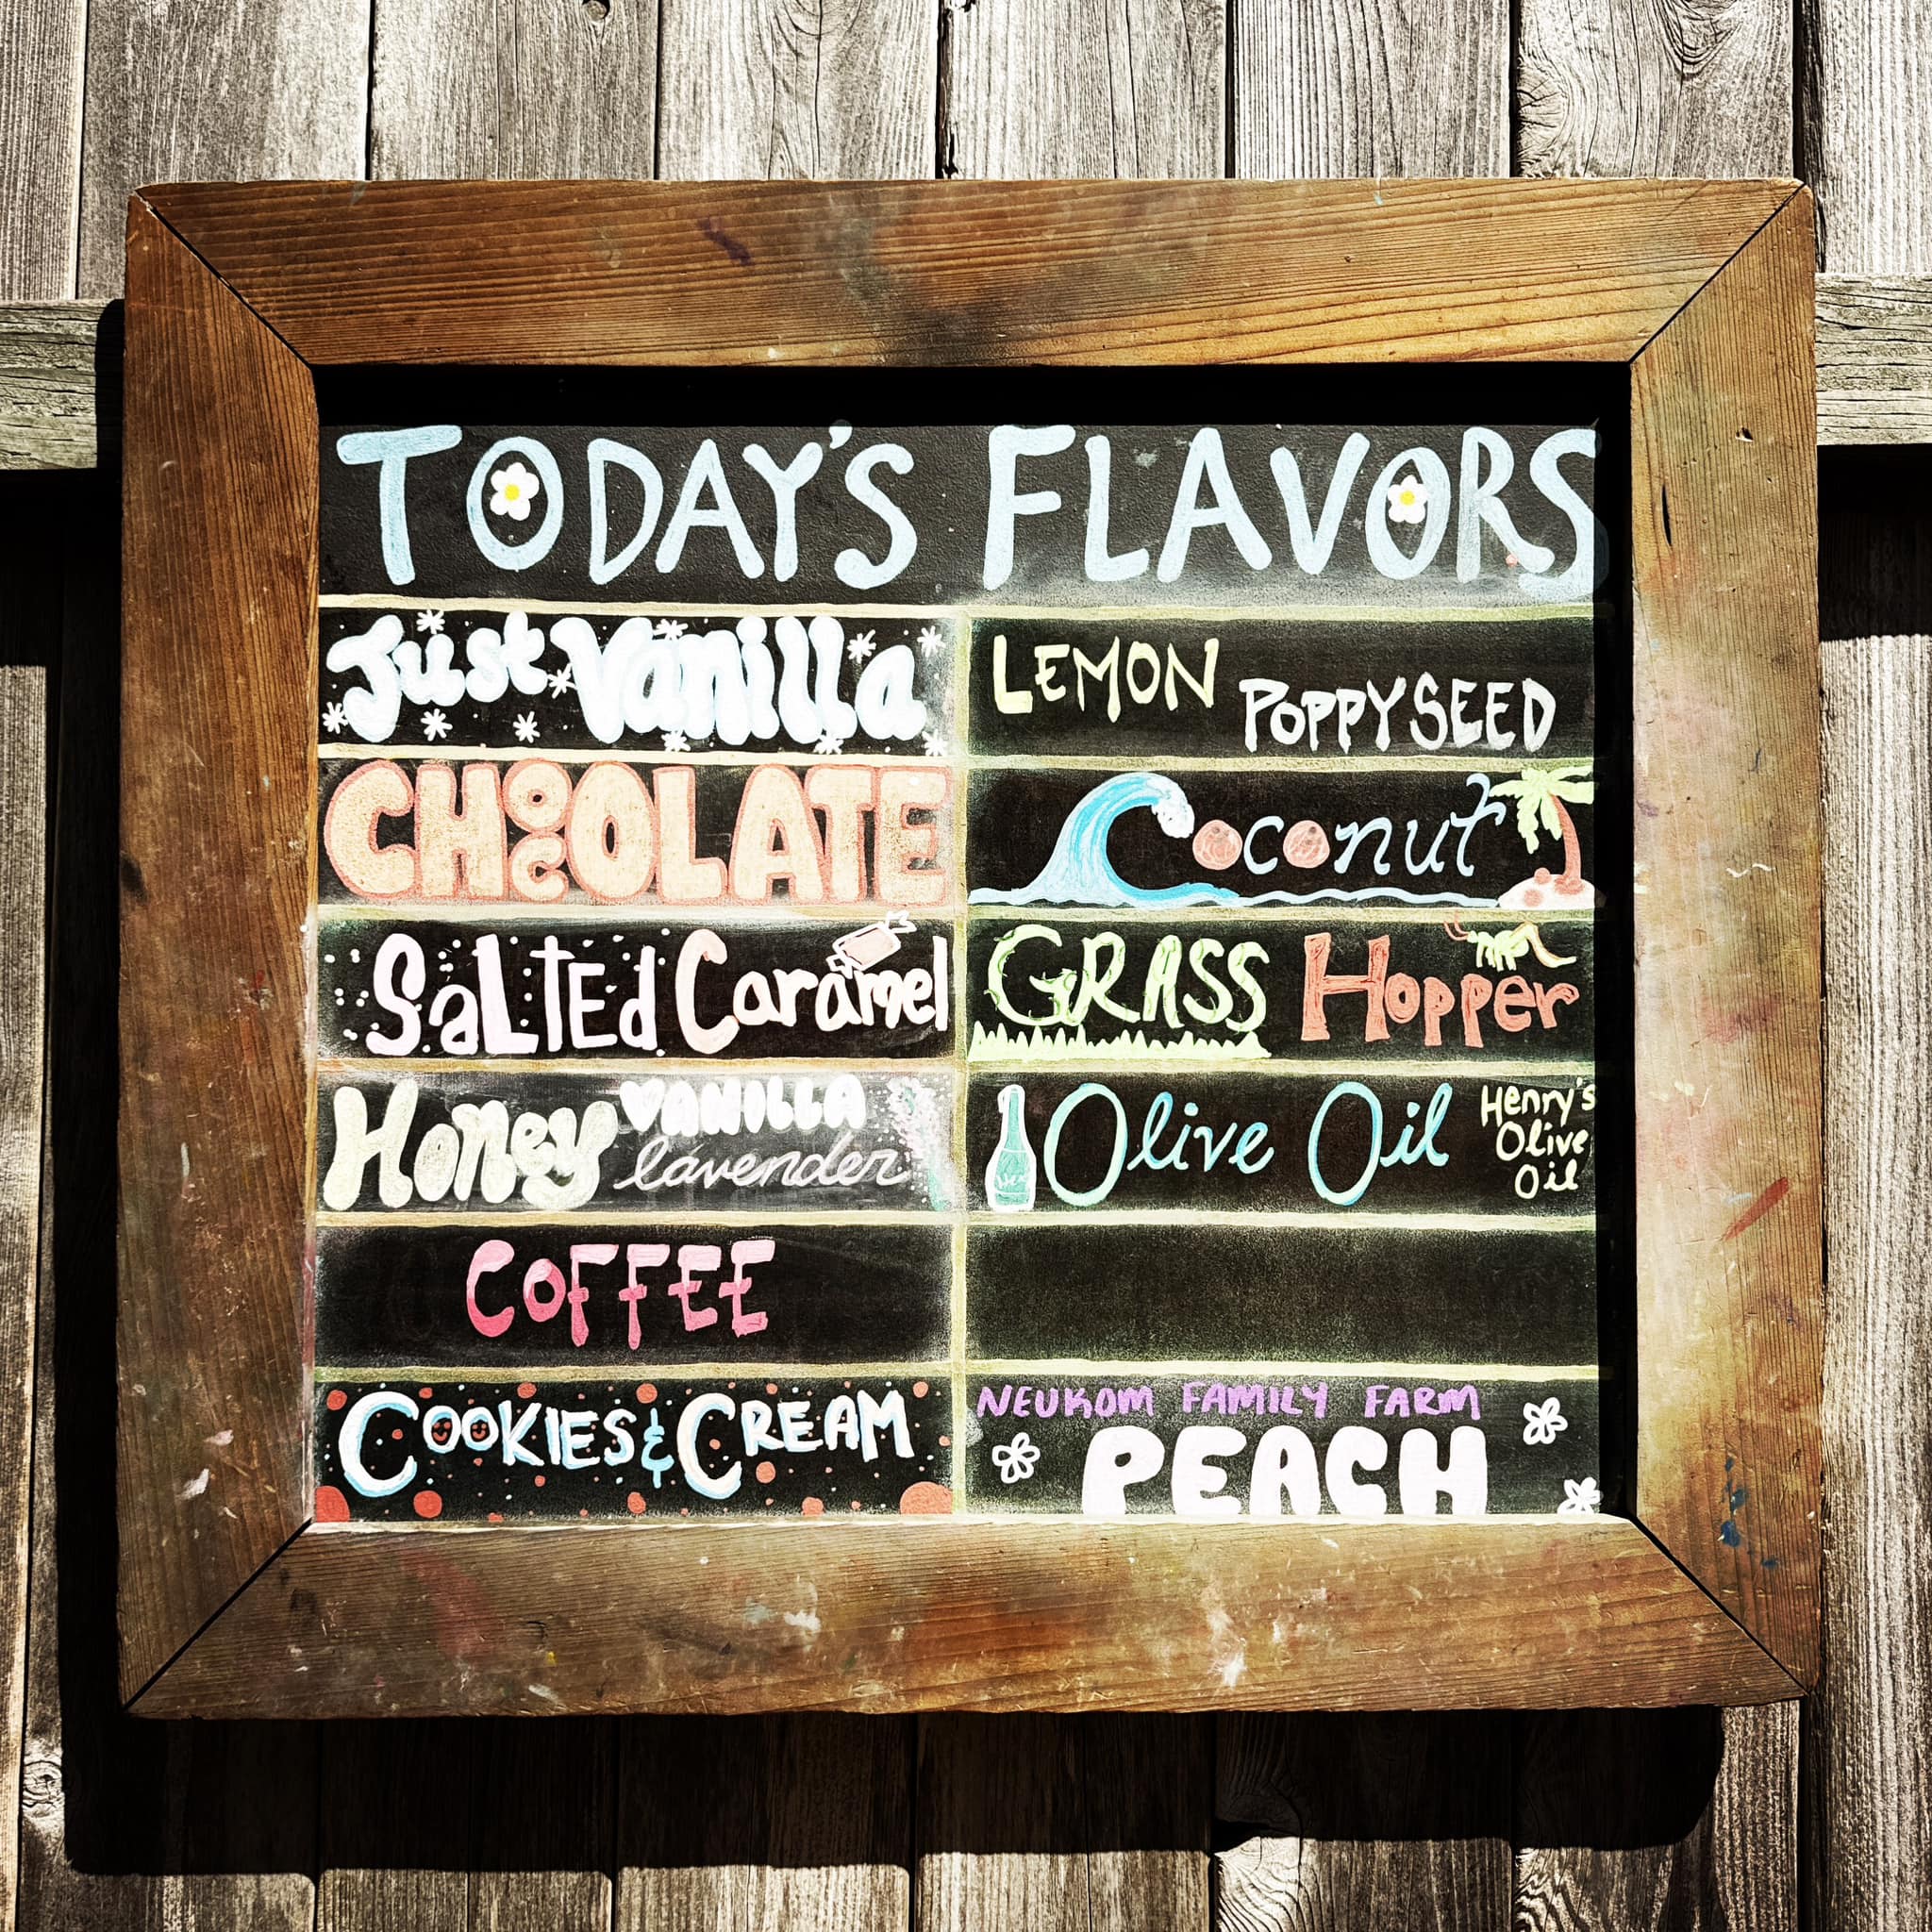 TODAY'S FLAVORS
Just Vanilla
CHOCOLATE
SaLTEd Caramel
Honey VANILLA
lavender
COFFEE
COOKIES & CREAM
LEMON
POPPYSEED
Coconut
GRASS Hopper
Olive Oil
Henry's
Olive
Oil
NEUKOM FAMILY FARM
PEACH